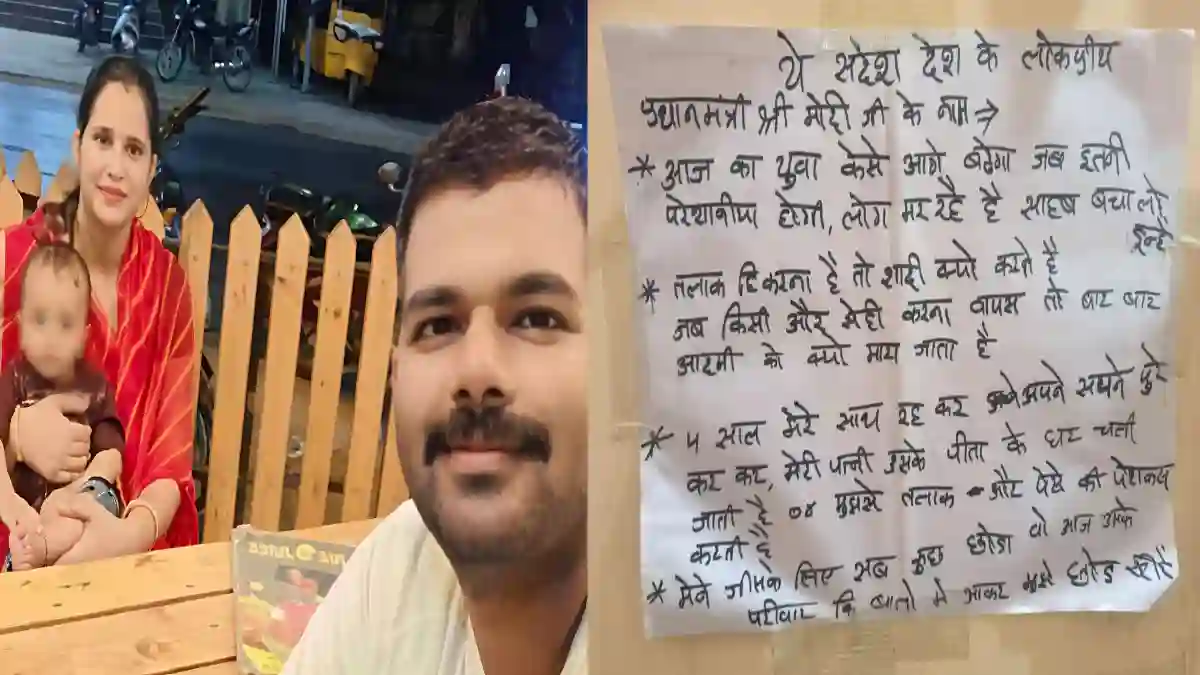 ये संदेश देश के लोकप्रीय
प्रधानमंत्री श्री मोदी जी के नाम ⇒
* आज का युवा केसे आगे बढेगा जब इतनी
परेशानीया होगी, लोग मर रहे है साहब बचा लो
इन्हे
* तलाक हि करना है तो शादी क्यो करते है
जब किसी और सेही करना वापस तो बार बार
आदमी को क्यो मारा जाता है
* 4 साल मेरे साथ रह कर अपने सपने पुरे
कर कर, मेरी पत्नी उसके पीता के घर चली
जाती है or मुझसे तलाक और पेसे की
करती है
* मेने जीसके लिए सब कुछ छोडा वो आज उसके
परीवार कि बातो मे आकर मुझे छोड